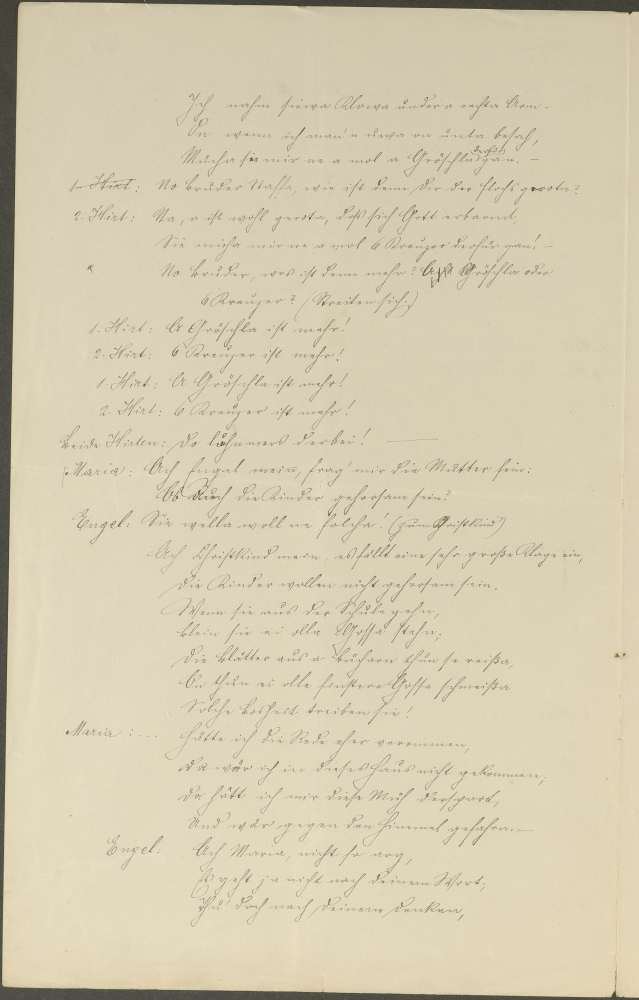 Ich nahm siewa Klowa under a rechta Arm.
On wenn ich man'n uwa on unta besah,
Mucha sie mir ne a mol a Gröschla derfür gan. —
1. Hirt: No Bruder Naffe, wie ist denn dir der Flohs gerota?
2. Hirt: Na, a ist wohl gerota, daß sich Gott erbarme!
Sie mucha mir ne a mol 6 Kreuzer derfür gan! —
No Bruder, was ist denn mehr? A Gröschla oder
6 Kreuzer? (Streiten sich.)
1. Hirt: A Gröschla ist mehr!
2. Hirt: 6 Kreuzer ist mehr!
1. Hirt: A Gröschla ist mehr!
2. Hirt: 6 Kreuzer ist mehr!
Beide Hirten: Do luhnmers derbei! —
Maria: Ach Engel mein, frag' mir die Mutter fein:
Ob Auch die Kinder gehorsam sein?
Engel: Sie wella woll ne folcha! (zum Christkind)
Ach Christkind mein, es fällt eine sehr große Klage ein,
Die Kinder wollen nicht gehorsam sein.
Wenn sie aus der Schule gehn,
Blein sie ei olla Gossa stehn;
Die Blätter aus a Büchern thun se reißa,
On thun ei olle finstere Gosse schmeißa
Solche Bosheit treiben sie!
Maria: Hätte ich die Rede eher vernommen,
Da wär ich in dieses Haus nicht gekommen;
Da hätt ich mir diese Müh derspart,
Und wär gegen den Himmel gefahrn. —
Engel: Ach Maria, nicht so arg,
Es geht ja nicht nach deinem Wort,
Thu' doch nach deinem Denken,